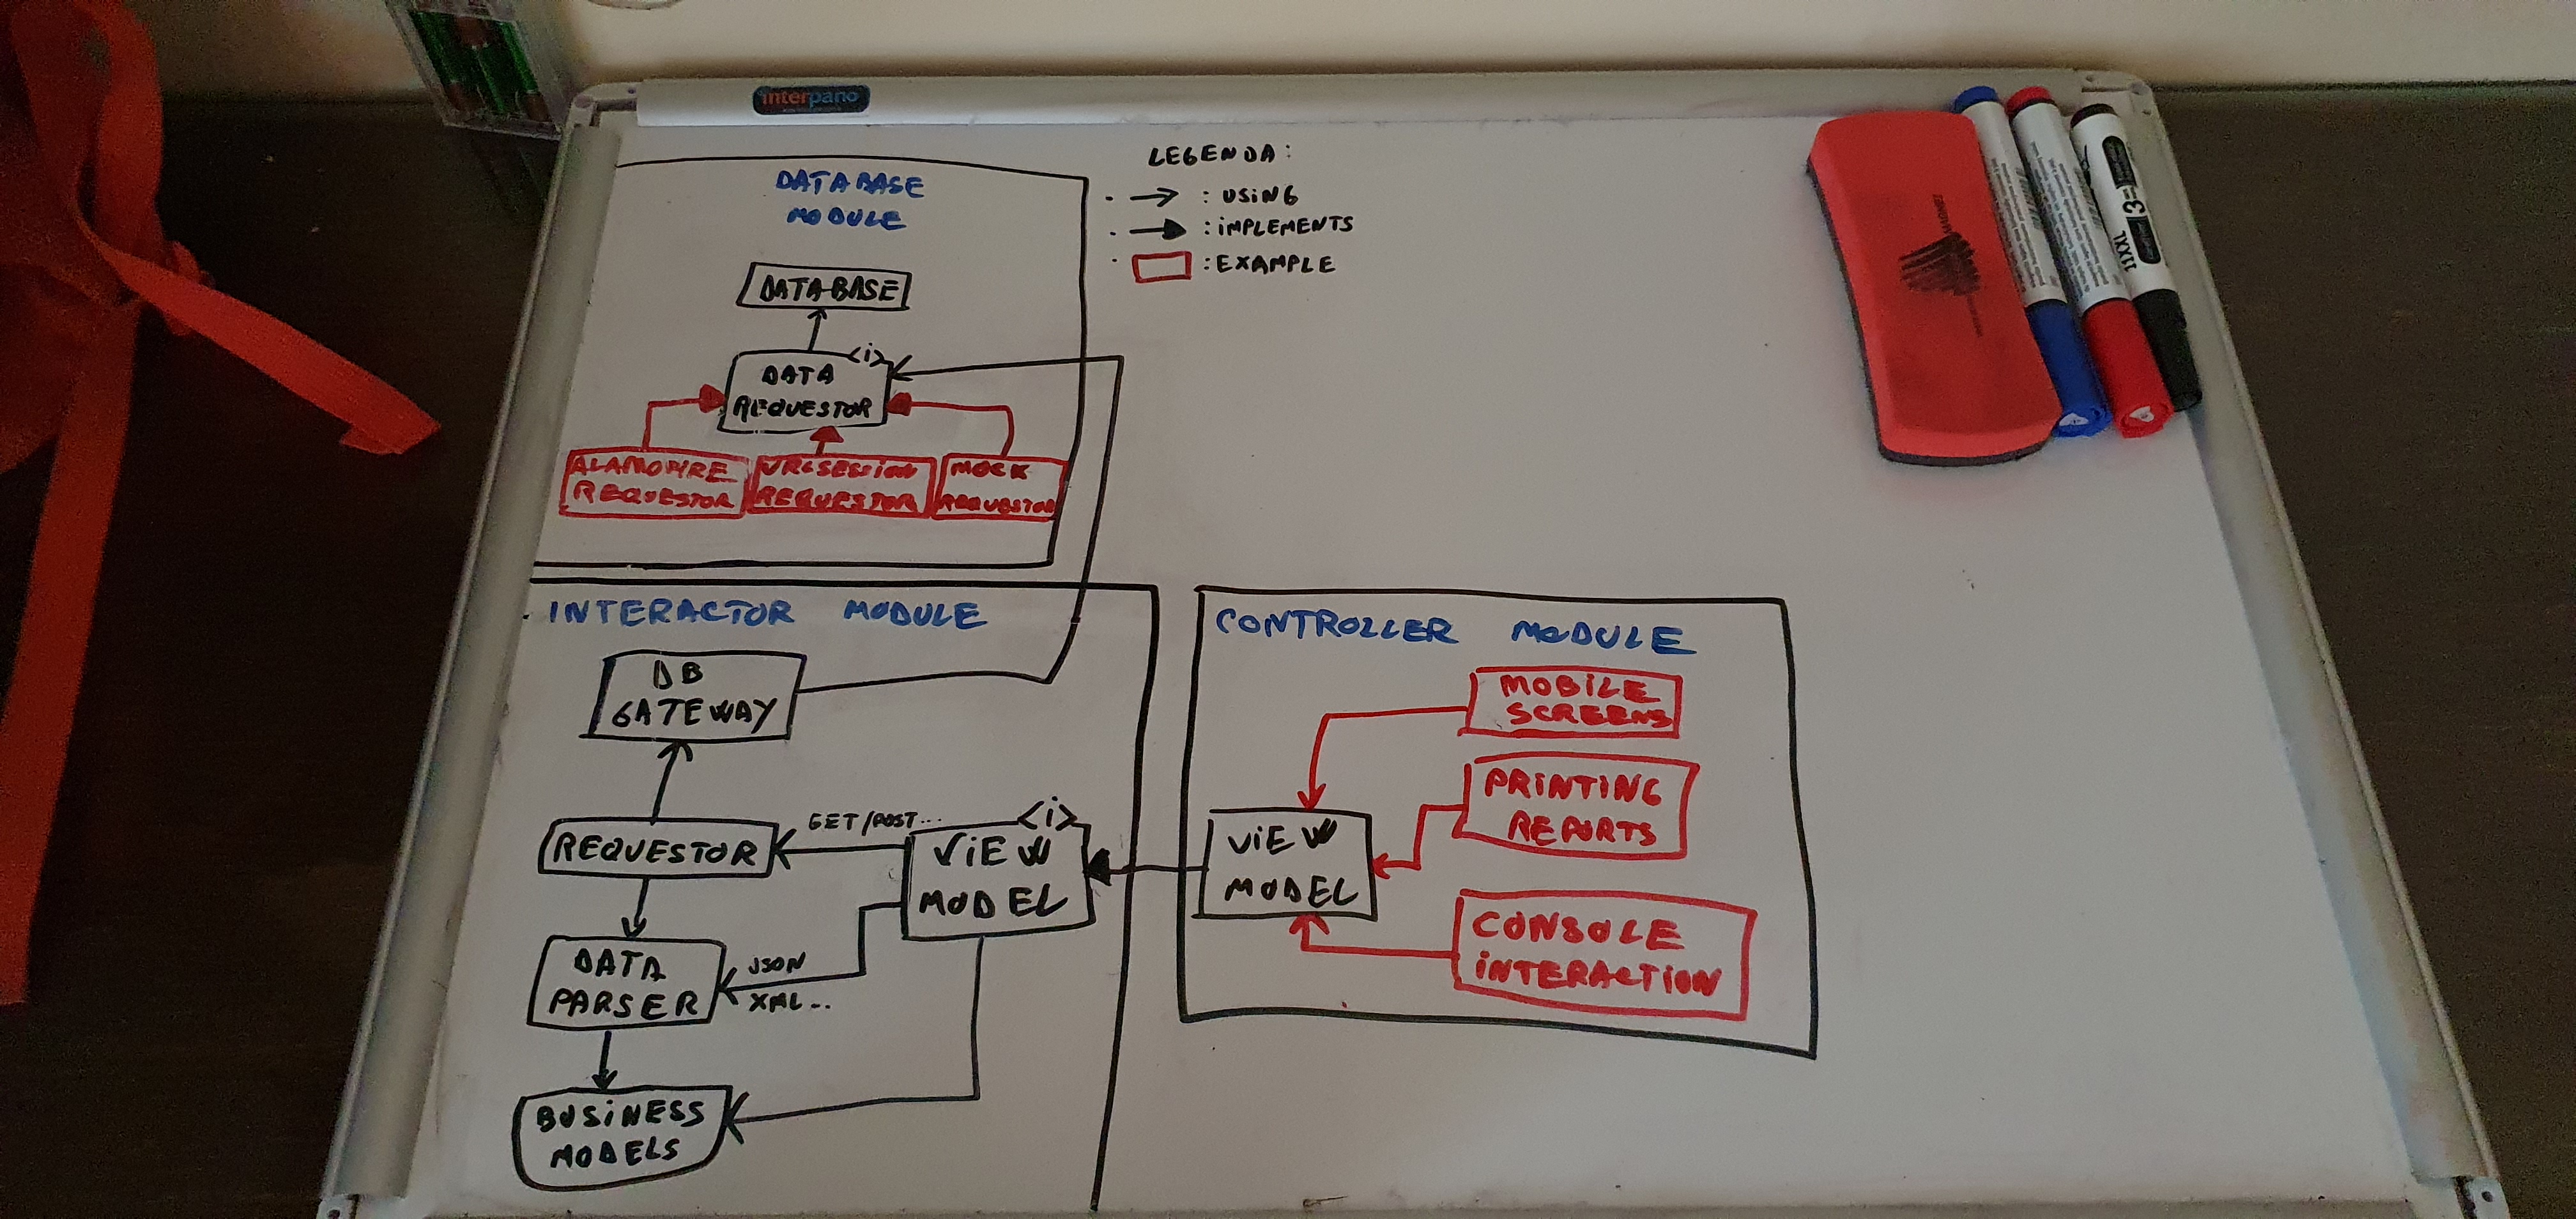 interpano
LEGENDA:
: USiNG
: iMPLEMENTS
: EXAMPLE
DATABASE
MODULE
DATABASE
<i>
DATA
REQUESTOR
ALAMOFIRE
REQUESTOR
URLSESSION
REQUESTOR
MOCK
REQUESTOR
INTERACTOR MODULE
DB
GATEWAY
REQUESTOR
GET/POST...
<i>
ViEW
MODEL
DATA
PARSER
JSON
XML...
BUSiNESS
MODELS
CONTROLLER MODULE
MOBiLE
SCREENS
PRiNTING
REPORTS
ViEW
MODEL
CONSOLE
iNTERACTiON
MAGNET
1XXL
3=